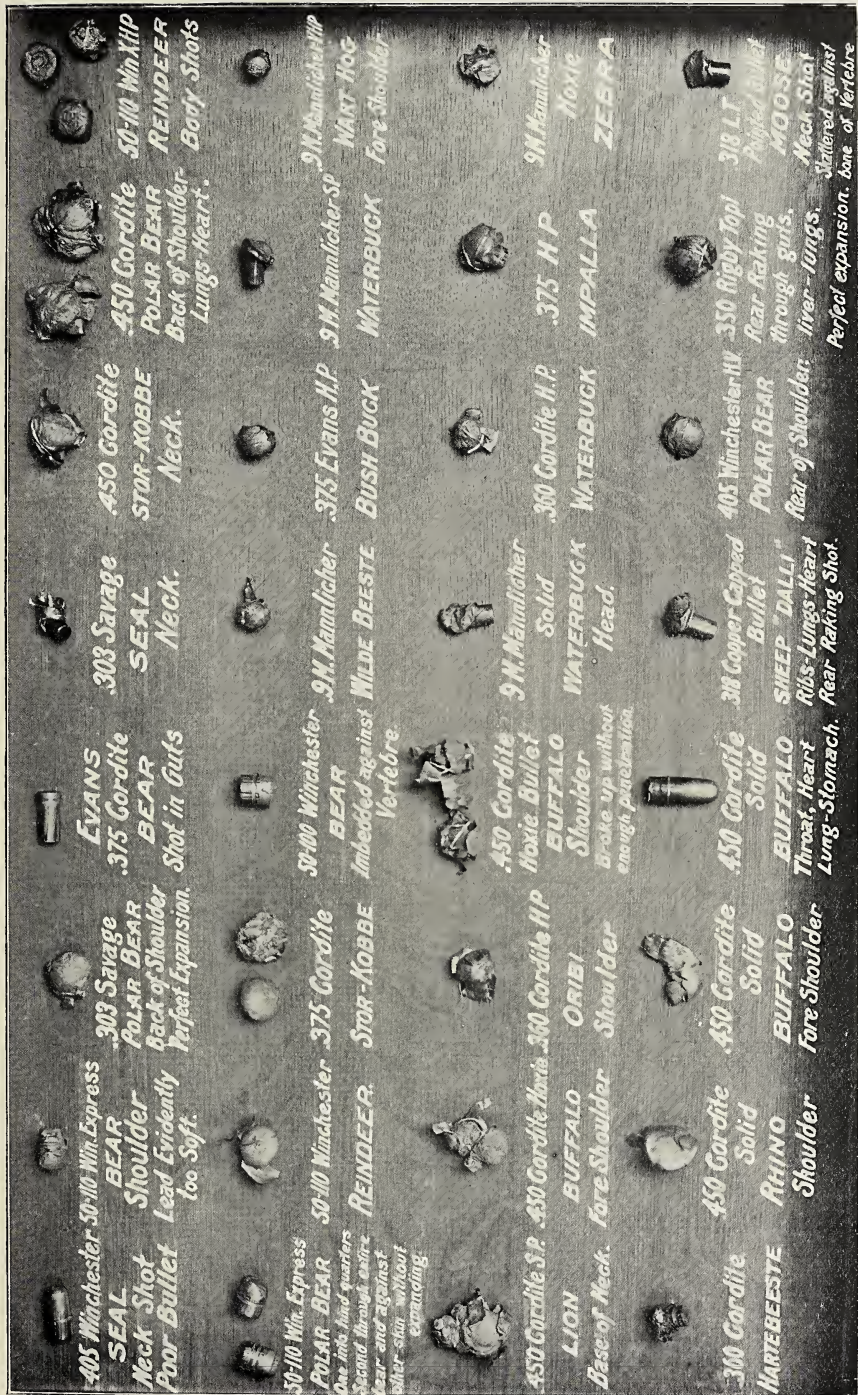 .405 Winchester
SEAL
Neck Shot
Poor Bullet
50-110 Win. Express
BEAR
Shoulder
Lead Evidently
too Soft.
.303 Savage
POLAR BEAR
Back of Shoulder
Perfect Expansion.
EVANS
.375 Cordite
BEAR
Shot in Guts
.303 Savage
SEAL
Neck.
.450 Cordite
STOR-KOBBE
Neck.
.450 Cordite
POLAR BEAR
Back of Shoulder-
Lungs-Heart.
50-110 Win XHP
REINDEER
Body Shots
50-110 Win. Express
POLAR BEAR
One into hind quarters
Second through entire
Bear and against
other skin without
expanding.
50-110 Winchester
REINDEER.
.375 Cordite
STOR-KOBBE
50-100 Winchester
BEAR
Imbedded against
Vertebre
.9 M. Mannlicher
WILDE BEESTE
.375 Evans H.P.
BUSH BUCK
.9 M. Mannlicher SP
WATERBUCK
.9 M. Mannlicher HP
WART HOG
Fore-Shoulder
.450 Cordite S.P.
LION
Base of Neck.
.450 Cordite Hoxie
BUFFALO
Fore Shoulder
.360 Cordite HP
ORIBI
Shoulder
.450 Cordite
Hoxie Bullet
BUFFALO
Shoulder
Broke up without
enough penetration
9 M. Mannlicher
Solid
WATERBUCK
Head.
.360 Cordite H.P.
WATERBUCK
.375 H P
IMPALLA
9 M. Mannlicher
Hoxie
ZEBRA
.360 Cordite
HARTEBEESTE
.450 Cordite
Solid
RHINO
Shoulder
.450 Cordite
Solid
BUFFALO
Fore Shoulder
.450 Cordite
Solid
BUFFALO
Throat, Heart
Lung-Stomach.
Copper Capped
Bullet
SHEEP "DALLI"
Ribs-Lungs-Heart
Rear Raking Shot.
.405 Winchester H.V.
POLAR BEAR
Rear of Shoulder.
.350 Rigby
Rear Raking
through guts.
liver-lungs.
Perfect expansion.
.318 L.T.
Bullet
MOOSE
Neck Shot
Shattered against
bone of Vertebre